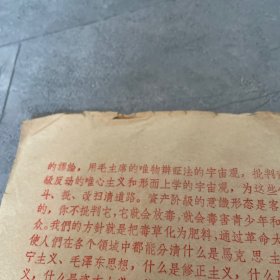 的谬论，用毛主席的唯物辩证法的宇宙观，批判资
级反动的唯心主义和形而上学的宇宙观，为这些
斗、批、改扫清道路。资产阶级的意识形态是客
的，你不批判它，它就会放毒，就会毒害青少年和
众。我们的方针就是把毒草化为肥料，通过革命
使人们在各个领域中都能分清什么是马克思主
宁主义、毛泽东思想，什么是修正主义，什
义，什么是